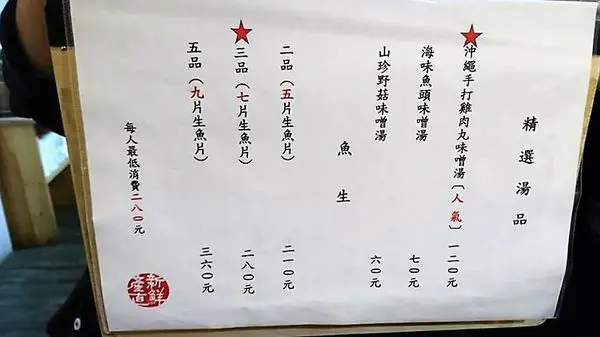 精選湯品
沖繩手打雞肉丸味噌湯〔人氣〕一二0元
海味魚頭味噌湯 七0元
山珍野菇味噌湯 六0元
魚生
二品（五片生魚片） 二一0元
三品（七片生魚片） 二八0元
五品（九片生魚片） 三六0元
每人最低消費二八0元
新鮮
產直